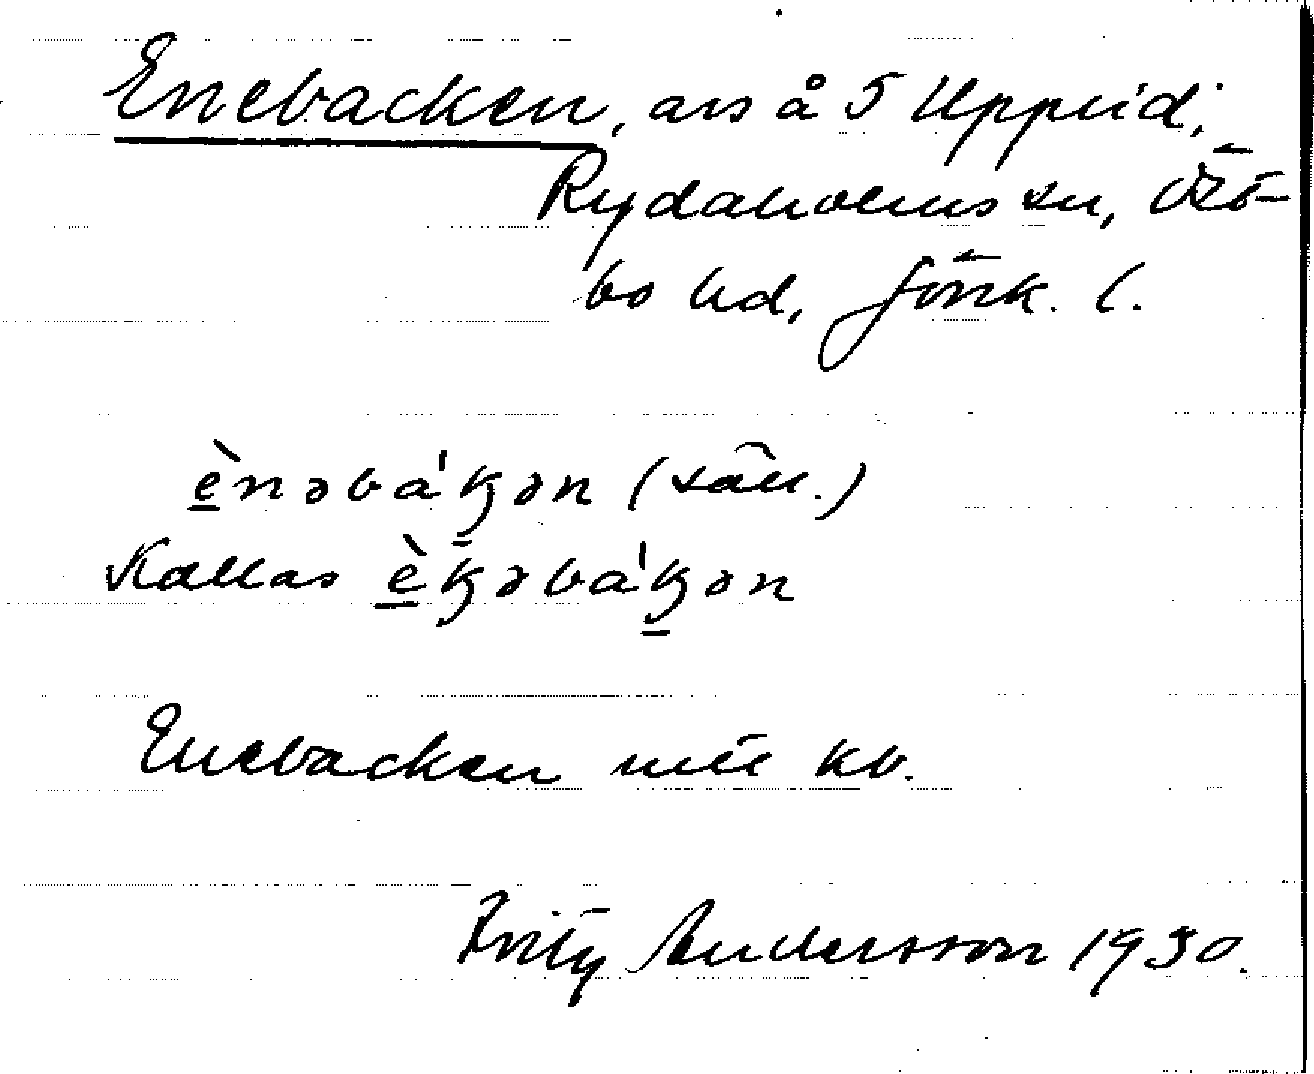 Enebacken, avs å 5 Uppeid,
Rydaholms sn, Östbo
hd, Jönk. l.
è̱nəbá'ꞣən (säll.)
Kallas è̱ꞣəbá'ꞣən
Enebacken utt kb.
Fritz Andersson 1930.